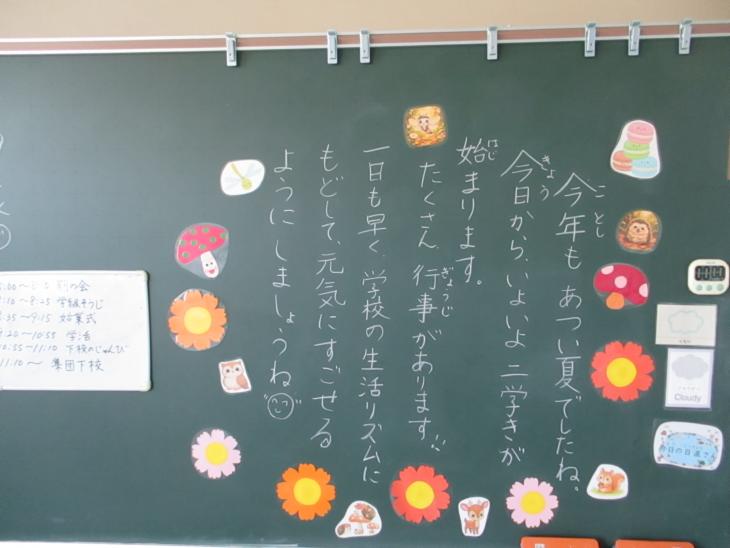 今年もあつい夏でしたね。
ことし
今日から、いよいよ二学きが
きょう
始まります。
はじ
たくさん、行事があります!!
ぎょうじ
一日も早く、学校の生活リズムに
もどして、元気にすごせる
ようにしましょうね
8:25 学級そうじ
9:15 始業式
10:55 学活
10:55〜11:10 下校のじゅんび
11:10〜 集団下校
Cloudy
今日の日直さん